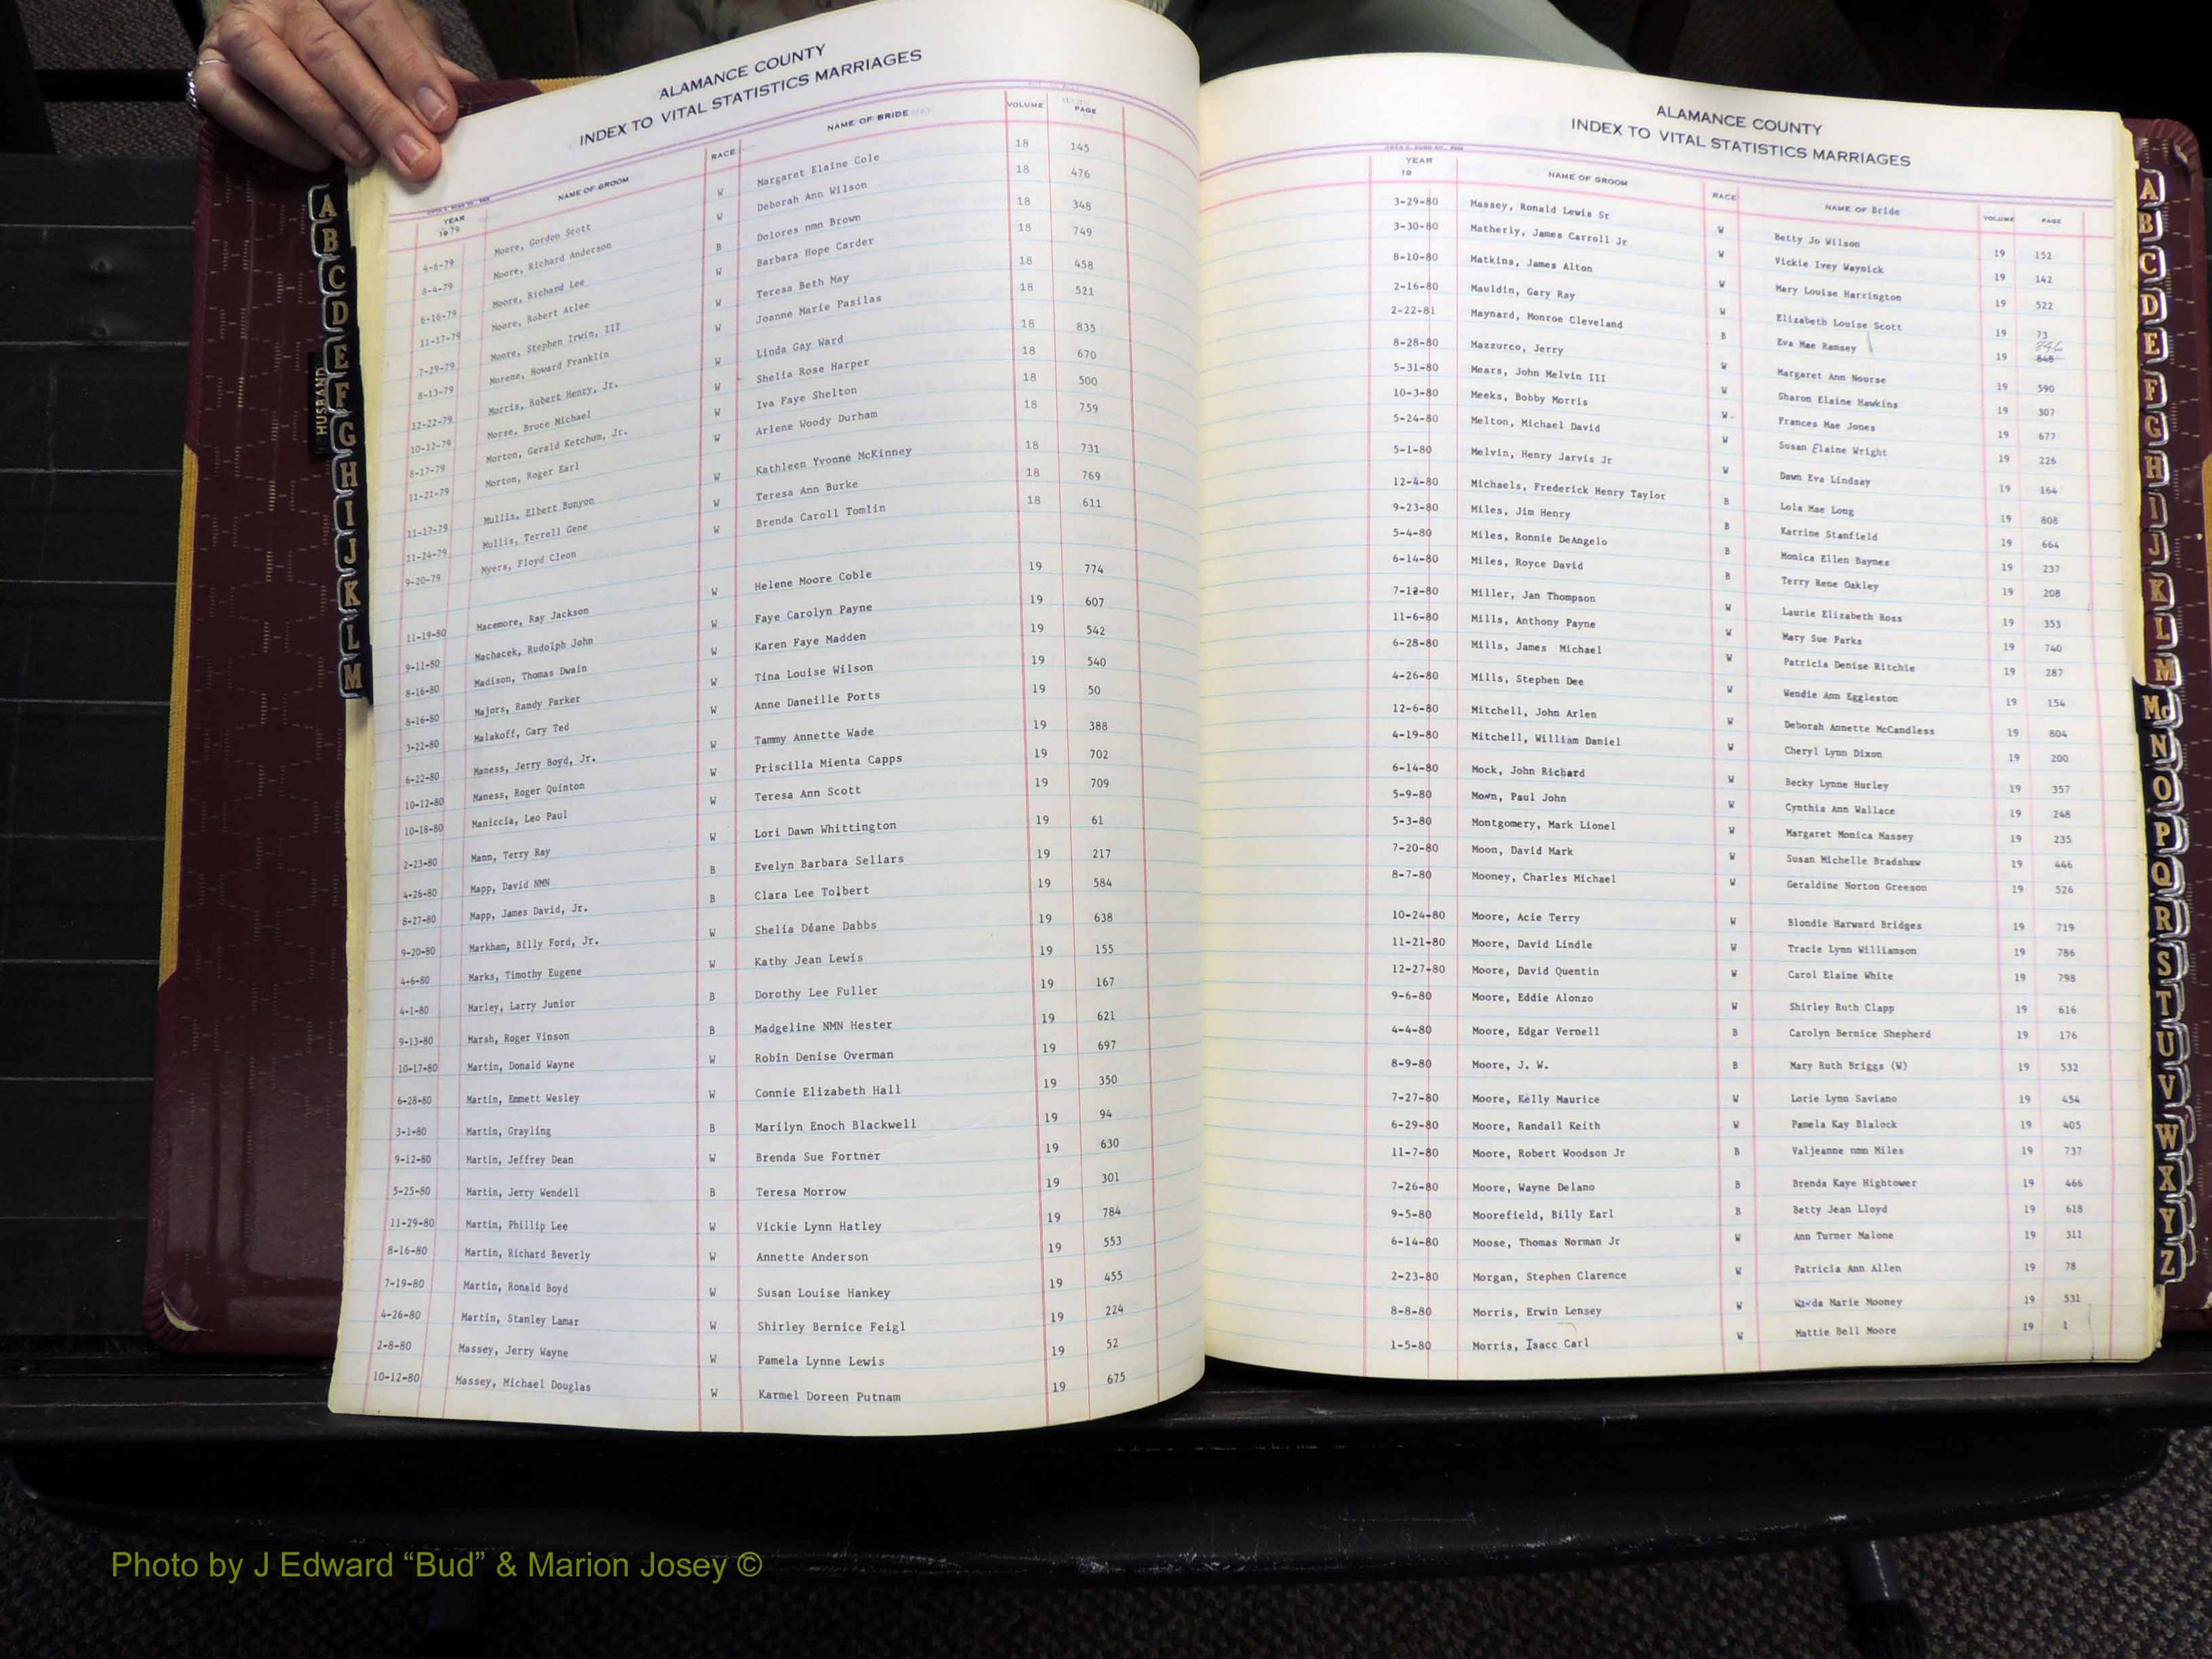 ALAMANCE COUNTY
INDEX TO VITAL STATISTICS MARRIAGES
YEAR 1979 NAME OF GROOM RACE NAME OF BRIDE VOLUME PAGE
4-6-79 Moore, Gordon Scott W Margaret Elaine Cole 18 145
8-4-79 Moore, Richard Anderson W Deborah Ann Wilson 18 476
6-16-79 Moore, Richard Lee B Dolores nmn Brown 18 348
11-17-79 Moore, Robert Atlee W Barbara Hope Carder 18 749
7-29-79 Moore, Stephen Irwin, III W Teresa Beth May 18 458
8-13-79 Morene, Howard Franklin W Joanne Marie Pasilas 18 521
12-22-79 Morris, Robert Henry, Jr. W Linda Gay Ward 18 835
10-12-79 Morse, Bruce Michael W Shelia Rose Harper 18 670
8-17-79 Morton, Gerald Ketchum, Jr. W Iva Faye Shelton 18 500
11-21-79 Morton, Roger Earl W Arlene Woody Durham 18 759
11-17-79 Mullis, Elbert Bunyon W Kathleen Yvonne McKinney 18 731
11-24-79 Mullis, Terrell Gene W Teresa Ann Burke 18 769
9-20-79 Myers, Floyd Cleon W Brenda Caroll Tomlin 18 611
11-19-80 Macemore, Ray Jackson W Helene Moore Coble 19 774
9-11-80 Machacek, Rudolph John W Faye Carolyn Payne 19 607
8-16-80 Madison, Thomas Dwain W Karen Faye Madden 19 542
8-16-80 Majors, Randy Parker W Tina Louise Wilson 19 540
3-22-80 Malakoff, Gary Ted W Anne Daneille Ports 19 50
6-22-80 Maness, Jerry Boyd, Jr. W Tammy Annette Wade 19 388
10-12-80 Maness, Roger Quinton W Priscilla Mienta Capps 19 702
10-18-80 Maniccia, Leo Paul W Teresa Ann Scott 19 709
2-23-80 Mann, Terry Ray W Lori Dawn Whittington 19 61
4-26-80 Mapp, David NMN B Evelyn Barbara Sellars 19 217
8-27-80 Mapp, James David, Jr. B Clara Lee Tolbert 19 584
9-20-80 Markham, Billy Ford, Jr. W Shelia Deane Dabbs 19 638
4-6-80 Marks, Timothy Eugene W Kathy Jean Lewis 19 155
4-1-80 Marley, Larry Junior B Dorothy Lee Fuller 19 167
9-13-80 Marsh, Roger Vinson B Madgeline NMN Hester 19 621
10-17-80 Martin, Donald Wayne W Robin Denise Overman 19 697
6-28-80 Martin, Emmett Wesley W Connie Elizabeth Hall 19 350
3-1-80 Martin, Grayling B Marilyn Enoch Blackwell 19 94
9-12-80 Martin, Jeffrey Dean W Brenda Sue Fortner 19 630
5-25-80 Martin, Jerry Wendell B Teresa Morrow 19 301
11-29-80 Martin, Phillip Lee W Vickie Lynn Hatley 19 784
8-16-80 Martin, Richard Beverly W Annette Anderson 19 553
7-19-80 Martin, Ronald Boyd W Susan Louise Hankey 19 455
4-26-80 Martin, Stanley Lamar W Shirley Bernice Feigl 19 224
2-8-80 Massey, Jerry Wayne W Pamela Lynne Lewis 19 52
10-12-80 Massey, Michael Douglas W Karmel Doreen Putnam 19 675
ALAMANCE COUNTY
INDEX TO VITAL STATISTICS MARRIAGES
YEAR 19 NAME OF GROOM RACE NAME OF Bride VOLUME PAGE
3-29-80 Massey, Ronald Lewis Sr W Betty Jo Wilson 19 152
3-30-80 Matherly, James Carroll Jr W Vickie Ivey Waynick 19 142
8-10-80 Matkins, James Alton W Mary Louise Harrington 19 522
2-16-80 Mauldin, Gary Ray W Elizabeth Louise Scott 19 73
2-22-81 Maynard, Monroe Cleveland B Eva Mae Ramsey 19
8-28-80 Mazzurco, Jerry W Margaret Ann Nourse 19 590
5-31-80 Mears, John Melvin III W Sharon Elaine Hawkins 19 307
10-3-80 Meeks, Bobby Morris W Frances Mae Jones 19 677
5-24-80 Melton, Michael David W Susan Elaine Wright 19 226
5-1-80 Melvin, Henry Jarvis Jr W Dawn Eva Lindsay 19 164
12-4-80 Michaels, Frederick Henry Taylor B Lola Mae Long 19 808
9-23-80 Miles, Jim Henry B Karrine Stanfield 19 664
5-4-80 Miles, Ronnie DeAngelo B Monica Ellen Baynes 19 237
6-14-80 Miles, Royce David B Terry Rene Oakley 19 208
7-12-80 Miller, Jan Thompson W Laurie Elizabeth Ross 19 353
11-6-80 Mills, Anthony Payne W Mary Sue Parks 19 740
6-28-80 Mills, James Michael W Patricia Denise Ritchie 19 287
4-26-80 Mills, Stephen Dee W Wendie Ann Eggleston 19 154
12-6-80 Mitchell, John Arlen W Deborah Annette McCandless 19 804
4-19-80 Mitchell, William Daniel W Cheryl Lynn Dixon 19 200
6-14-80 Mock, John Richard W Becky Lynne Hurley 19 357
5-9-80 Mown, Paul John W Cynthia Ann Wallace 19 248
5-3-80 Montgomery, Mark Lionel W Margaret Monica Massey 19 235
7-20-80 Moon, David Mark W Susan Michelle Bradshaw 19 446
8-7-80 Mooney, Charles Michael W Geraldine Norton Greeson 19 526
10-24-80 Moore, Acie Terry W Blondie Harward Bridges 19 719
11-21-80 Moore, David Lindle W Tracie Lynn Williamson 19 786
12-27-80 Moore, David Quentin W Carol Elaine White 19 798
9-6-80 Moore, Eddie Alonzo W Shirley Ruth Clapp 19 616
4-4-80 Moore, Edgar Vernell B Carolyn Bernice Shepherd 19 176
8-9-80 Moore, J. W. B Mary Ruth Briggs (W) 19 532
7-27-80 Moore, Kelly Maurice W Lorie Lynn Saviano 19 454
6-29-80 Moore, Randall Keith W Pamela Kay Blalock 19 405
11-7-80 Moore, Robert Woodson Jr B Valjeanne nmn Miles 19 737
7-26-80 Moore, Wayne Delano B Brenda Kaye Hightower 19 466
9-5-80 Moorefield, Billy Earl B Betty Jean Lloyd 19 618
6-14-80 Moose, Thomas Norman Jr W Ann Turner Malone 19 311
2-23-80 Morgan, Stephen Clarence W Patricia Ann Allen 19 78
8-8-80 Morris, Erwin Lensey W Wanda Marie Mooney 19 531
1-5-80 Morris, Isacc Carl W Mattie Bell Moore 19 1
HUSBAND
A
B
C
D
E
F
G
H
I
J
K
L
M
A
B
C
D
E
F
G
H
I
J
K
L
M
Mc
N
O
P
Q
R
S
T
U
V
W
X
Y
Z
Photo by J Edward “Bud” & Marion Josey ©